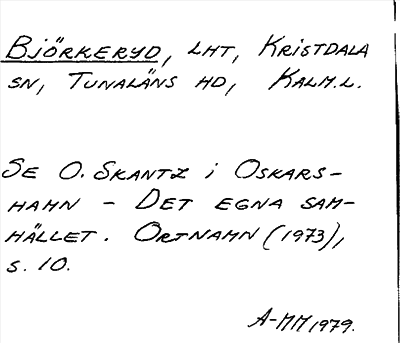 BJÖRKERYD, LHT, KRISTDALA
SN, TUNALÄNS HD, KALM.L.
SE O. SKANTZ i OSKARS-
HAMN - DET EGNA SAM-
HÄLLET. ORTNAMN (1973),
s. 10.
A-MM 1979.